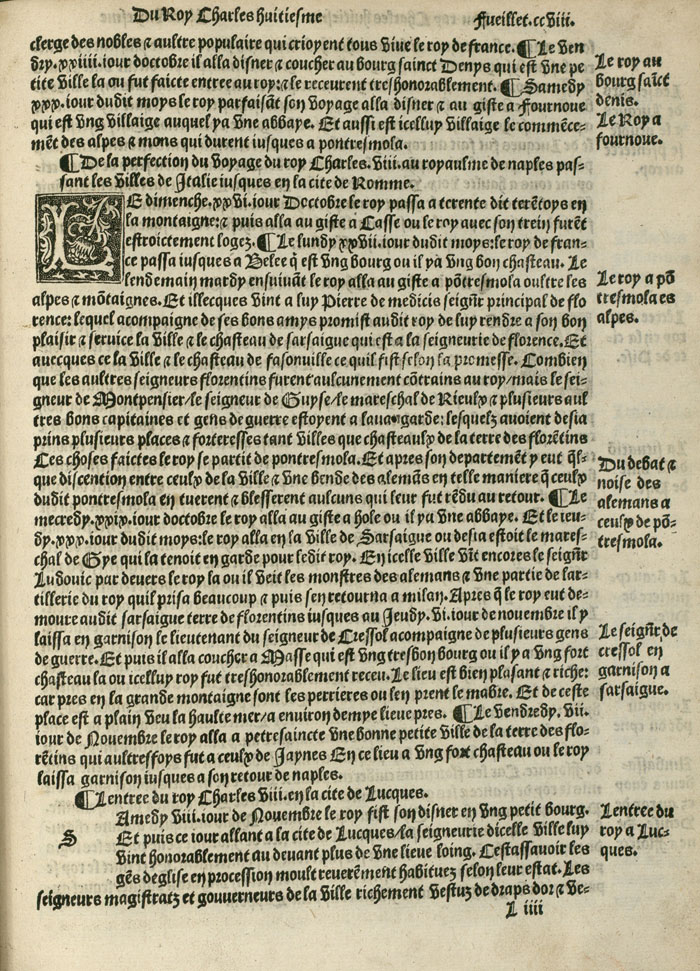 Du Roy Charles huitiesme
Fueillet. ccviii.
clerge des nobles & aultre populaire qui crioyent tous viue le roy de france. ¶ Le ven⸗
dry. xxiiii. iour doctobre il alla disner & coucher au bourg sainct Denys qui est vne pe
tite ville la ou fut faicte entree au roy: & le receurent treshonorablement. ¶ Samedy
xxx. iour dudit moys le roy parfaisãt son voyage alla disner & au giste a Fournoue
qui est vng villaige auquel ya vne abbaye. Et aussi est icelluy villaige le commẽce⸗
mẽt des alpes & mons qui durent iusques a pontresmola.
Le roy au
bourg saĩct
denis.
Le Roy a
fournoue.
¶ De la perfection du voyage du roy Charles. viii. au royaulme de naples pas⸗
sant les villes de Italie iusques en la cite de Romme.
LE dimenche. xxvi. iour Doctobre le roy passa a terente dit terẽtoys en
la montaigne: & puis alla au giste a Casse ou le roy auec son trein furẽt
estroictement logez. ¶ Le lundy xxvii. iour dudit moys: le roy de fran⸗
ce passa iusques a Belee q̃ est vng bourg ou il ya vng bon chasteau. Le
lendemain mardy ensuiuãt le roy alla au giste a põtresmola oultre les
alpes & mõtaignes. Et illecques vint a luy Pierre de medicis seigñr principal de flo
rence: lequel acompaigne de ses bons amys promist audit roy de luy rendre a son bon
plaisir & seruice la ville & le chasteau de sarsaigue qui est a la seigneurie de florence. Et
auecques ce la ville & le chasteau de fasonuille ce quil fist selon la promesse. Combien
que les aultres seigneurs florentins furent aulcunement cõtrains au roy/mais le sei⸗
gneur de Montpensier/le seigneur de Guyse/le mareschal de Rieulx & plusieurs aul
tres bons capitaines et gens de guerre estoyent a laua garde: lesquelz auoient desia
prins plusieurs places & forteresses tant villes que chasteaulx de la terre des florẽtins
Ces choses faictes le roy se partit de pontresmola. Et apres son departemẽt y eut q̃l⸗
que discention entre ceulx de la ville & vne bende des alemãs en telle maniere q̃ ceulx
dudit pontresmola en tuerent & blesserent aulcuns qui leur fut rẽdu au retour. ¶ Le
mecredy. xxix. iour doctobre le roy alla au giste a hole ou il ya vne abbaye. Et le ieu⸗
dy. xxx. iour dudit moys: le roy alla en la ville de Sarsaigue ou desia estoit le mares⸗
chal de Gye qui la tenoit en garde pour ledit roy. En icelle ville vĩt encores le seigñr
Ludouic par deuers le roy la ou il veit les monstres des alemans & vne partie de lar⸗
tillerie du roy quil prisa beaucoup & puis sen retourna a milan. Apres q̃ le roy eut de⸗
moure audit sarsaigue terre de florentins iusques au Jeudy. vi. iour de nouembre il y
laissa en garnison le lieutenant du seigneur de Cressol acompaigne de plusieurs gens
de guerre. Et puis il alla coucher a Masse qui est vng tresbon bourg ou il y a vng fort
chasteau la ou icelluy roy fut treshonorablement receu. Le lieu est bien plasant & riche:
car pres en la grande montaigne sont les perrieres ou len prent le mabre. Et de ceste
place est a plain veu la haulte mer/a enuiron demye lieue pres. ¶ Le vendredy. vii.
iour de Nouembre le roy alla a petresaincte vne bonne petite ville de la terre des flo⸗
rẽtins qui aultresfoys fut a ceulx de Jaynes En ce lieu a vng fort chasteau ou le roy
laissa garnison iusques a son retour de naples.
Le roy a põ
tresmola es
alpes.
Du debat &
noise des
alemans a
ceulx de põ⸗
tresmola.
Le seigñr de
cressol en
garnison a
sarsaigue.
¶ Lentree du roy Charles viii. en la cite de Lucques.
SAmedy viii. iour de Nouembre le roy fist son disner en vng petit bourg.
Et puis ce iour allant a la cite de Lucques/la seigneurie dicelle ville luy
vint honorablement au deuant plus de vne lieue loing. Cestassauoir les
gẽs deglise en procession moult reueremẽt habituez selon leur estat. Les
seigneurs magistratz et gouuerneurs de la ville richement vestuz de draps dor & ve⸗
Lentree du
roy a Luc⸗
ques.
L iiii